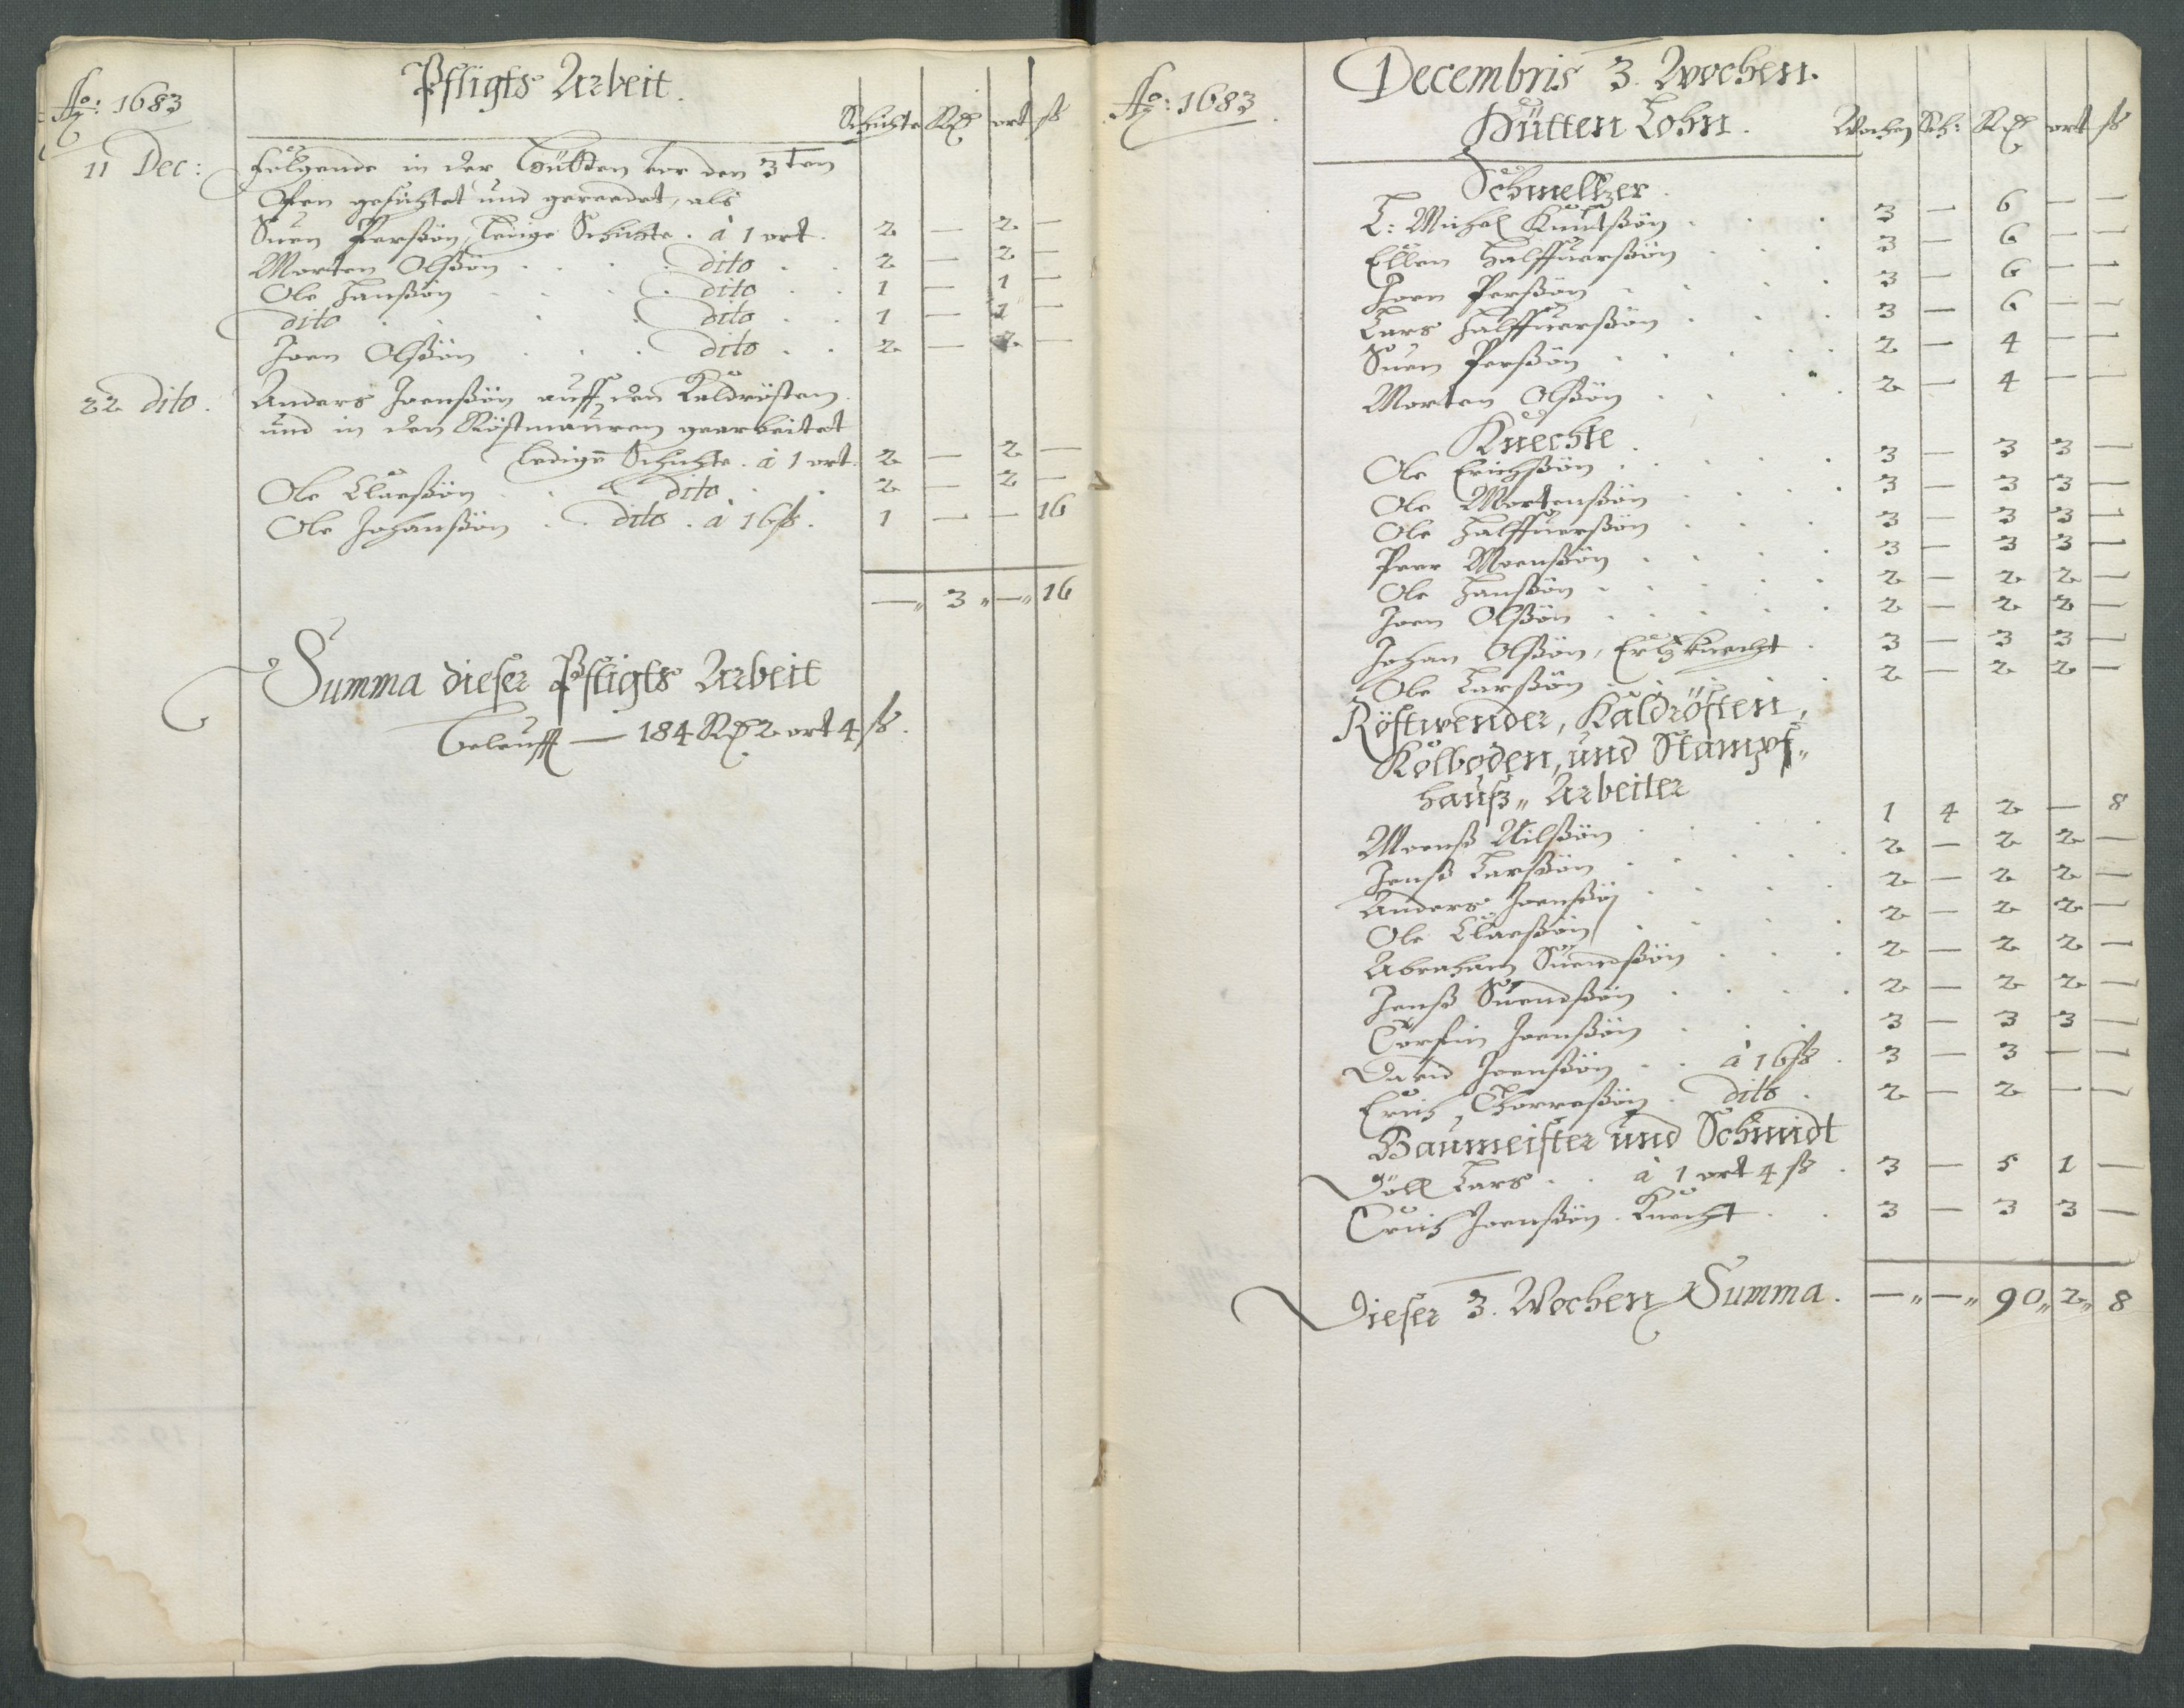 Ao: 1683
Pfligts Arbeit.
Schichte Rd ort ß
11 Dec: Folgende in der Hütten vor den 3ten
Ofen gesichtet und gereedet, als
Suen Perßön, ledige Schichte. â 1 ort. 2 — 2 —
Morten Olßön . . . dito . . 2 — 2 —
Ole Hanßön . . . dito . . 1 — 1 —
dito . . . dito . . 1 — 1 —
Joen Olßön . . . dito . . 2 — 2 —
22 dito. Anders Joenßön auff den Kaldrösten
und in den Röstmauren gearbeitet
ledige Schichte. â 1 ort. 2 — 2 —
Ole Claeßön . . dito . . 2 — 2 —
Ole Johanßön . . dito . â 16 ß. 1 — — 16
—„ 3 „ —„ 16
Summa dieser Pfligts Arbeit
beleufft — 184 Rd 2 ort 4 ß.
Ao: 1683
Decembris 3. Wochen.
Hütten Lohn. Wochen Sch: Rd ort ß
Schmeltzer.
L: Michel Knutßön . . . 3 — 6 — —
Ellen Halffuerßön . . . 3 — 6 — —
Joen Perßön . . . 3 — 6 — —
Lars Halffuerßön . . . 3 — 6 — —
Suen Perßön . . . 2 — 4 — —
Morten Olßön . . . 2 — 4 — —
Knechte.
Ole Erichßön . . . 3 — 3 3 —
Ole Mortenßön . . . 3 — 3 3 —
Ole Halffuerßön . . . 3 — 3 3 —
Peer Moenßön . . . 3 — 3 3 —
Ole Hanßön . . . 2 — 2 2 —
Joen Olßön . . . 2 — 2 2 —
Johan Olßön, Ertzknecht . 3 — 3 3 —
Ole Larßön . . . 2 — 2 2 —
Röstwender, Kaldrösten,
Kolboden, und Stampf„
hauß„ Arbeiter
Moenß Nilßön . . . 1 4 2 — 8
Jenß Larßön . . . 2 — 2 2 —
Anders Joenßön . . . 2 — 2 2 —
Ole Claeßön . . . 2 — 2 2 —
Abraham Suendßön . . . 2 — 2 2 —
Jenß Suendßön . . . 2 — 2 2 —
Torfin Joenßön . . . 3 — 3 3 —
David Joenßön . . â 16 ß . 3 — 3 — —
Erich Thorreßön . dito . 2 — 2 — —
Baumeister und Schmidt
Döll Lars . . â 1 ort 4 ß . 3 — 5 1 —
Erich Joenßön . Knecht . . 3 — 3 3 —
Dieser 3. Wochen Summa. —„ —„ 90„ 2„ 8